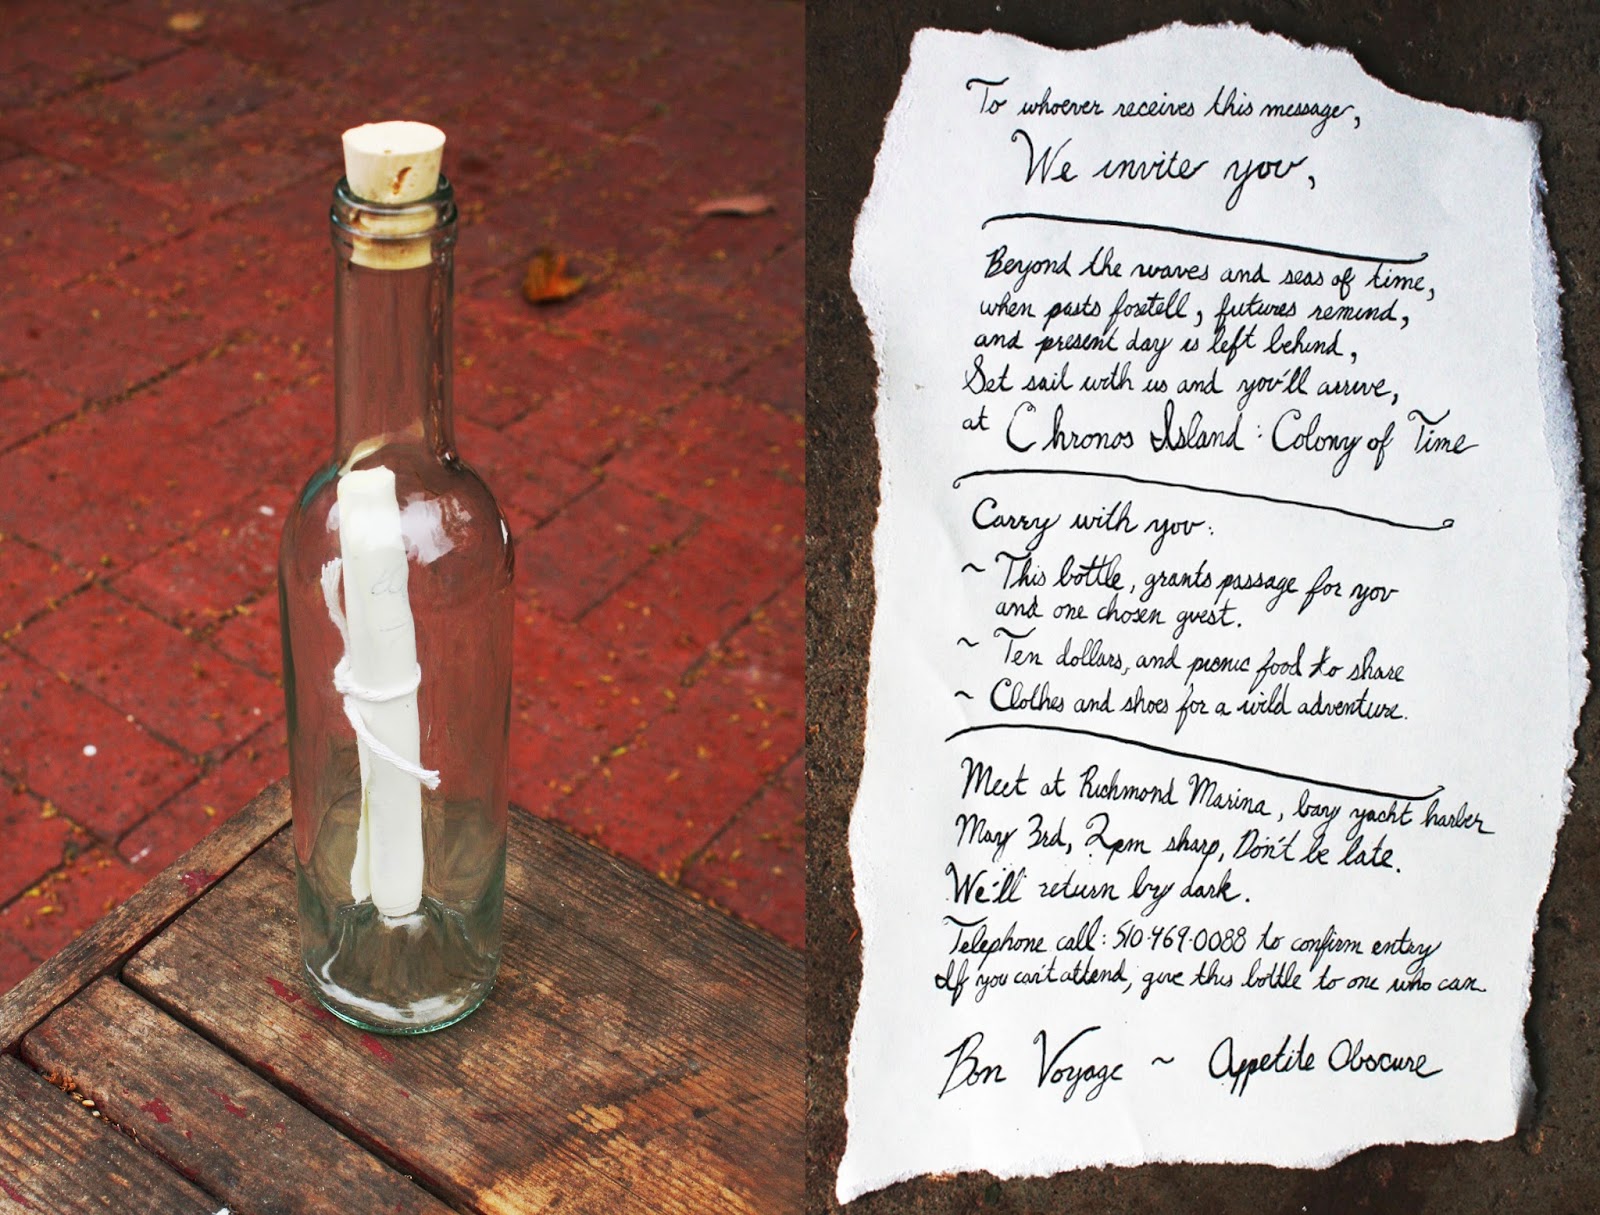 To whoever receives this message,
We invite you,
Beyond the waves and seas of time,
when pasts foretell, futures remind,
and present day is left behind,
Set sail with us and you'll arrive,
at Chronos Island: Colony of Time
Carry with you:
~ This bottle, grants passage for you
and one chosen guest.
~ Ten dollars, and picnic food to share
~ Clothes and shoes for a wild adventure.
Meet at Richmond Marina, bay yacht harber
May 3rd, 2pm sharp, Don't be late.
We'll return by dark.
Telephone call: 510-969-0088 to confirm entry
If you can't attend, give this bottle to one who can.
Bon Voyage ~ Appetite Obscure